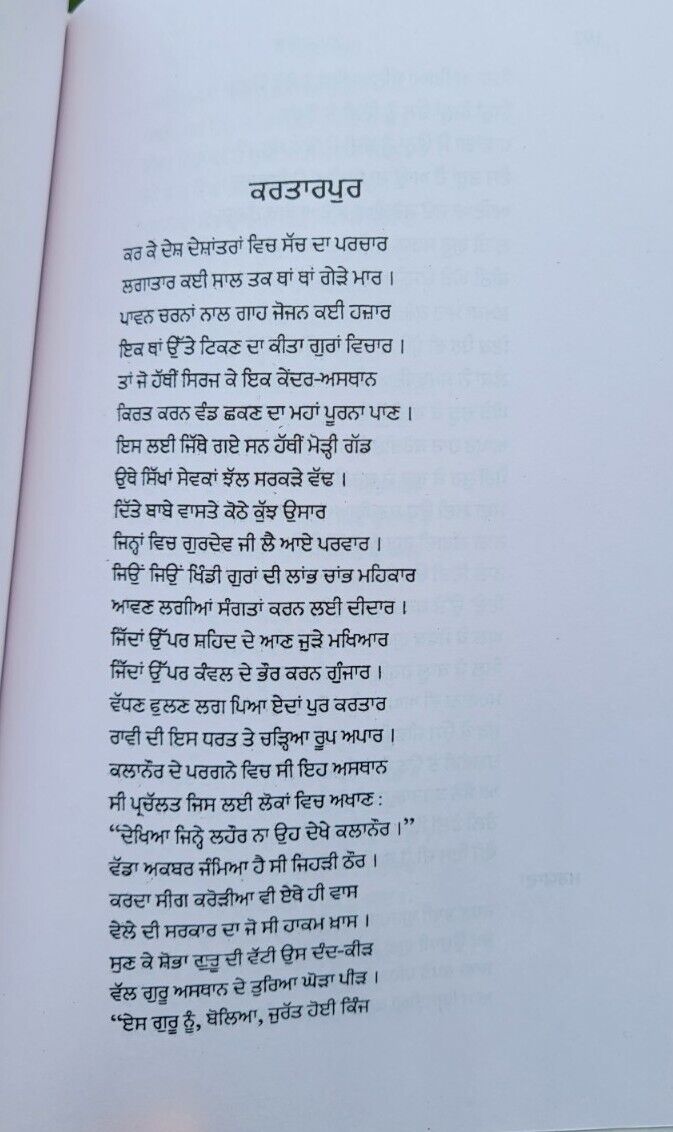 ਕਰਤਾਰਪੁਰ
ਕਰ ਕੇ ਦੇਸ਼ ਦੇਸ਼ਾਂਤਰਾਂ ਵਿਚ ਸੱਚ ਦਾ ਪਰਚਾਰ
ਲਗਾਤਾਰ ਕਈ ਸਾਲ ਤਕ ਥਾਂ ਥਾਂ ਗੇੜੇ ਮਾਰ ।
ਪਾਵਨ ਚਰਨਾਂ ਨਾਲ ਗਾਹ ਜੋਜਨ ਕਈ ਹਜ਼ਾਰ
ਇਕ ਥਾਂ ਉੱਤੇ ਟਿਕਣ ਦਾ ਕੀਤਾ ਗੁਰਾਂ ਵਿਚਾਰ ।
ਤਾਂ ਜੋ ਹੱਥੀਂ ਸਿਰਜ ਕੇ ਇਕ ਕੇਂਦਰ-ਅਸਥਾਨ
ਕਿਰਤ ਕਰਨ ਵੰਡ ਛਕਣ ਦਾ ਮਹਾਂ ਪੂਰਨਾ ਪਾਣ ।
ਇਸ ਲਈ ਜਿੱਥੇ ਗਏ ਸਨ ਹੱਥੀਂ ਮੋੜ੍ਹੀ ਗੱਡ
ਉਥੇ ਸਿੱਖਾਂ ਸੇਵਕਾਂ ਝੱਲ ਸਰਕੜੇ ਵੱਢ ।
ਦਿੱਤੇ ਬਾਬੇ ਵਾਸਤੇ ਕੋਠੇ ਕੁੱਝ ਉਸਾਰ
ਜਿਨ੍ਹਾਂ ਵਿਚ ਗੁਰਦੇਵ ਜੀ ਲੈ ਆਏ ਪਰਵਾਰ ।
ਜਿਉਂ ਜਿਉਂ ਖਿੰਡੀ ਗੁਰਾਂ ਦੀ ਲਾਂਭ ਚਾਂਭ ਮਹਿਕਾਰ
ਆਵਣ ਲਗੀਆਂ ਸੰਗਤਾਂ ਕਰਨ ਲਈ ਦੀਦਾਰ ।
ਜਿੱਦਾਂ ਉੱਪਰ ਸ਼ਹਿਦ ਦੇ ਆਣ ਜੁੜੇ ਮਖਿਆਰ
ਜਿੱਦਾਂ ਉੱਪਰ ਕੰਵਲ ਦੇ ਭੌਰ ਕਰਨ ਗੁੰਜਾਰ ।
ਵੱਧਣ ਫੁਲਣ ਲਗ ਪਿਆ ਏਦਾਂ ਪੁਰ ਕਰਤਾਰ
ਰਾਵੀ ਦੀ ਇਸ ਧਰਤ ਤੇ ਚੜ੍ਹਿਆ ਰੂਪ ਅਪਾਰ ।
ਕਲਾਨੌਰ ਦੇ ਪਰਗਨੇ ਵਿਚ ਸੀ ਇਹ ਅਸਥਾਨ
ਸੀ ਪ੍ਰਚੱਲਤ ਜਿਸ ਲਈ ਲੋਕਾਂ ਵਿਚ ਅਖਾਣ :
“ਦੇਖਿਆ ਜਿਨ੍ਹੇ ਲਹੌਰ ਨਾ ਉਹ ਦੇਖੇ ਕਲਾਨੌਰ ।”
ਵੱਡਾ ਅਕਬਰ ਜੰਮਿਆ ਹੈ ਸੀ ਜਿਹੜੀ ਠੌਰ ।
ਕਰਦਾ ਸੀਗ ਕਰੋੜੀਆ ਵੀ ਏਥੇ ਹੀ ਵਾਸ
ਵੇਲੇ ਦੀ ਸਰਕਾਰ ਦਾ ਜੋ ਸੀ ਹਾਕਮ ਖ਼ਾਸ ।
ਸੁਣ ਕੇ ਸ਼ੋਭਾ ਗੁਰੂ ਦੀ ਵੱਟੀ ਉਸ ਦੰਦ-ਕੀੜ
ਵੱਲ ਗੁਰੂ ਅਸਥਾਨ ਦੇ ਤੁਰਿਆ ਘੋੜਾ ਪੀੜ ।
“ਏਸ ਗੁਰੂ ਨੂੰ, ਬੋਲਿਆ, ਜੁਰੱਤ ਹੋਈ ਕਿੰਜ